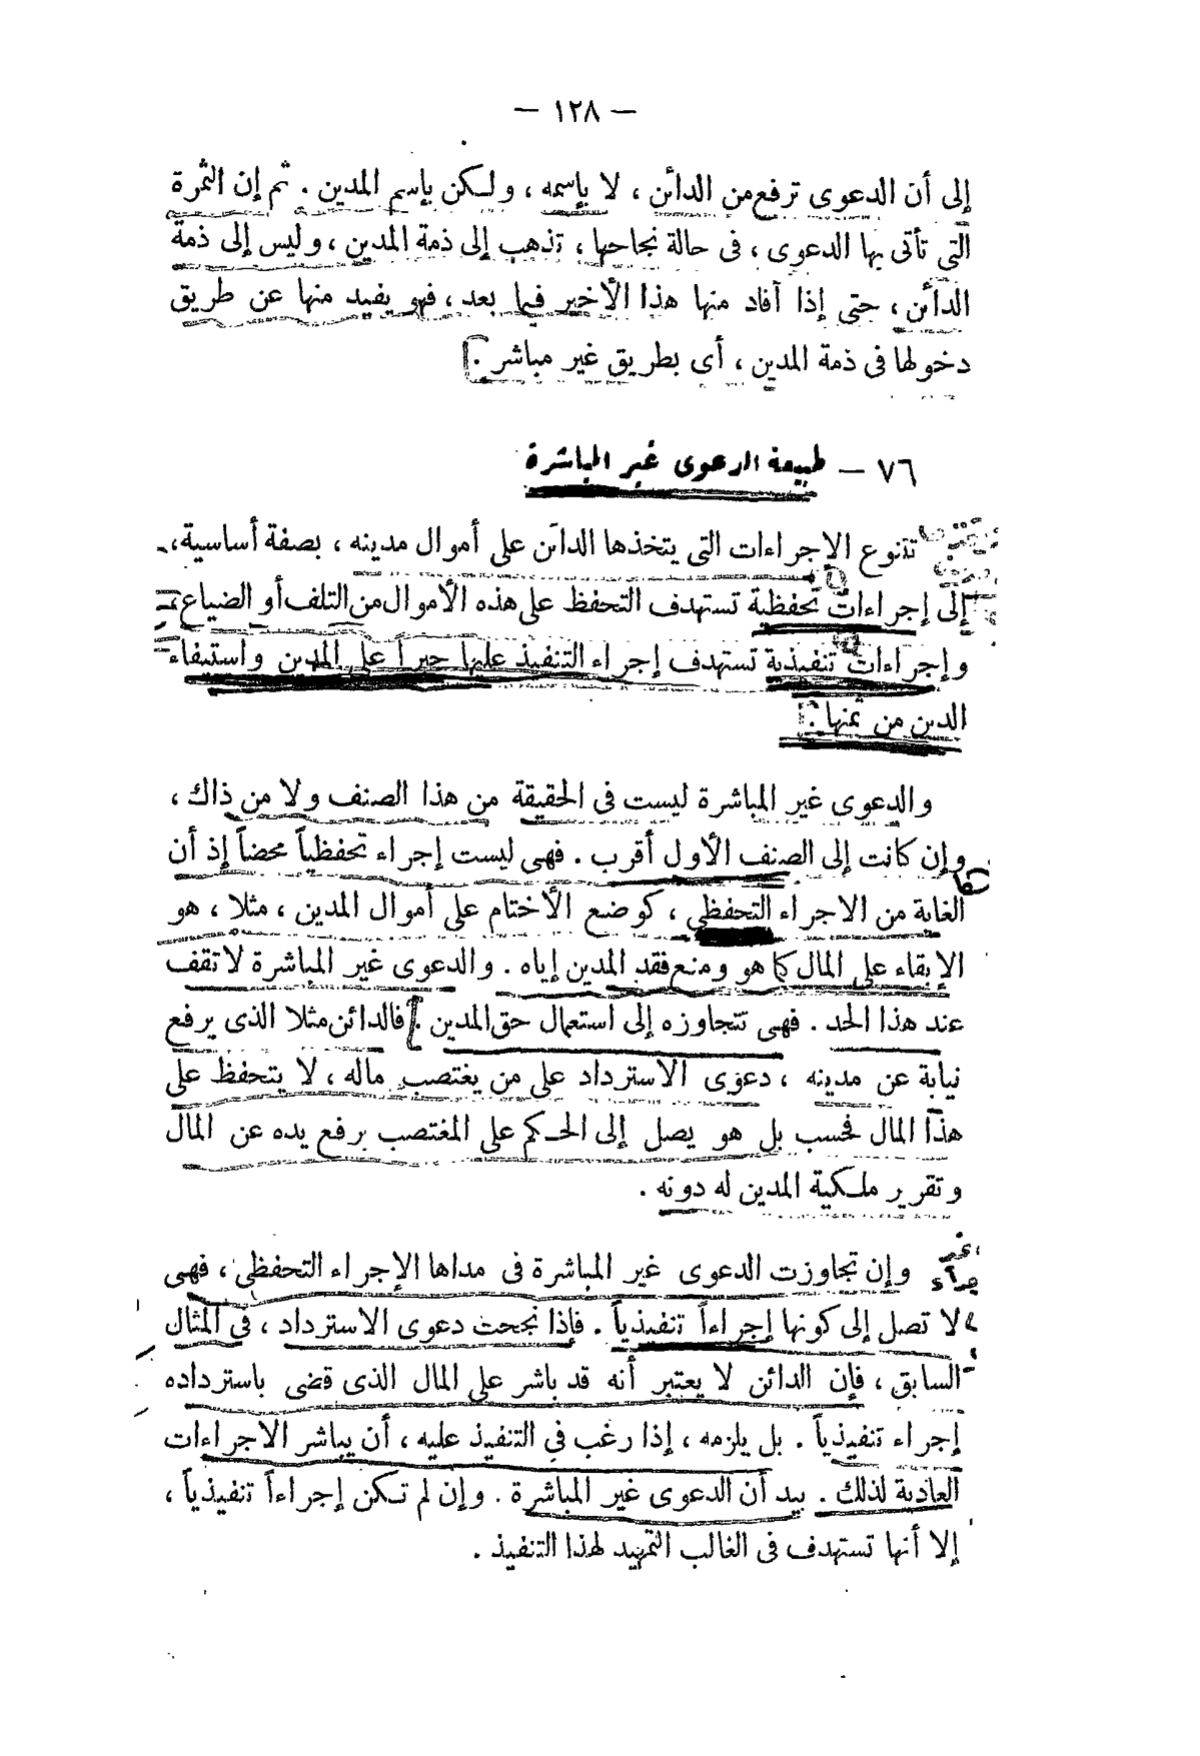 — ١٢٨ —
إلى أن الدعوى ترفع من الدائن ، لا بإسمه ، ولكن بإسم المدين . ثم إن الثمرة
التى تأتى بها الدعوى ، فى حالة نجاحها ، تذهب إلى ذمة المدين ، وليس إلى ذمة
الدائن ، حتى إذا أفاد منها هذا الأخير فيما بعد ، فهو يفيد منها عن طريق
دخولها فى ذمة المدين ، أى بطريق غير مباشر .
٧٦ — طبيعة الدعوى غير المباشرة
تتنوع الإجراءات التى يتخذها الدائن على أموال مدينه ، بصفة أساسية ،
إلى إجراءات تحفظية تستهدف التحفظ على هذه الأموال من التلف أو الضياع
وإجراءات تنفيذية تستهدف إجراء التنفيذ عليها جبراً على المدين واستيفاء
الدين من ثمنها .
والدعوى غير المباشرة ليست فى الحقيقة من هذا الصنف ولا من ذاك ،
وإن كانت إلى الصنف الأول أقرب . فهى ليست إجراء تحفظياً محضاً إذ أن
الغاية من الاجراء التحفظى ، كوضع الأختام على أموال المدين ، مثلا ، هو
الإبقاء على المال كما هو ومنع فقد المدين إياه . والدعوى غير المباشرة لا تقف
عند هذا الحد . فهى تتجاوزه إلى استعمال حق المدين . فالدائن مثلا الذى يرفع
نيابة عن مدينه ، دعوى الاسترداد على من يغتصب ماله ، لا يتحفظ على
هذا المال فحسب بل هو يصل إلى الحكم على المغتصب برفع يده عن المال
وتقرير ملكية المدين له دونه .
وإن تجاوزت الدعوى غير المباشرة فى مداها الإجراء التحفظى ، فهى
لا تصل إلى كونها إجراءاً تنفيذياً . فإذا نجحت دعوى الاسترداد ، فى المثال
السابق ، فإن الدائن لا يعتبر أنه قد باشر على المال الذى قضى باسترداده
إجراء تنفيذياً . بل يلزمه ، إذا رغب في التنفيذ عليه ، أن يباشر الاجراءات
العادية لذلك . بيد أن الدعوى غير المباشرة . وإن لم تكن إجراءاً تنفيذياً ،
إلا أنها تستهدف فى الغالب التمهيد لهذا التنفيذ .